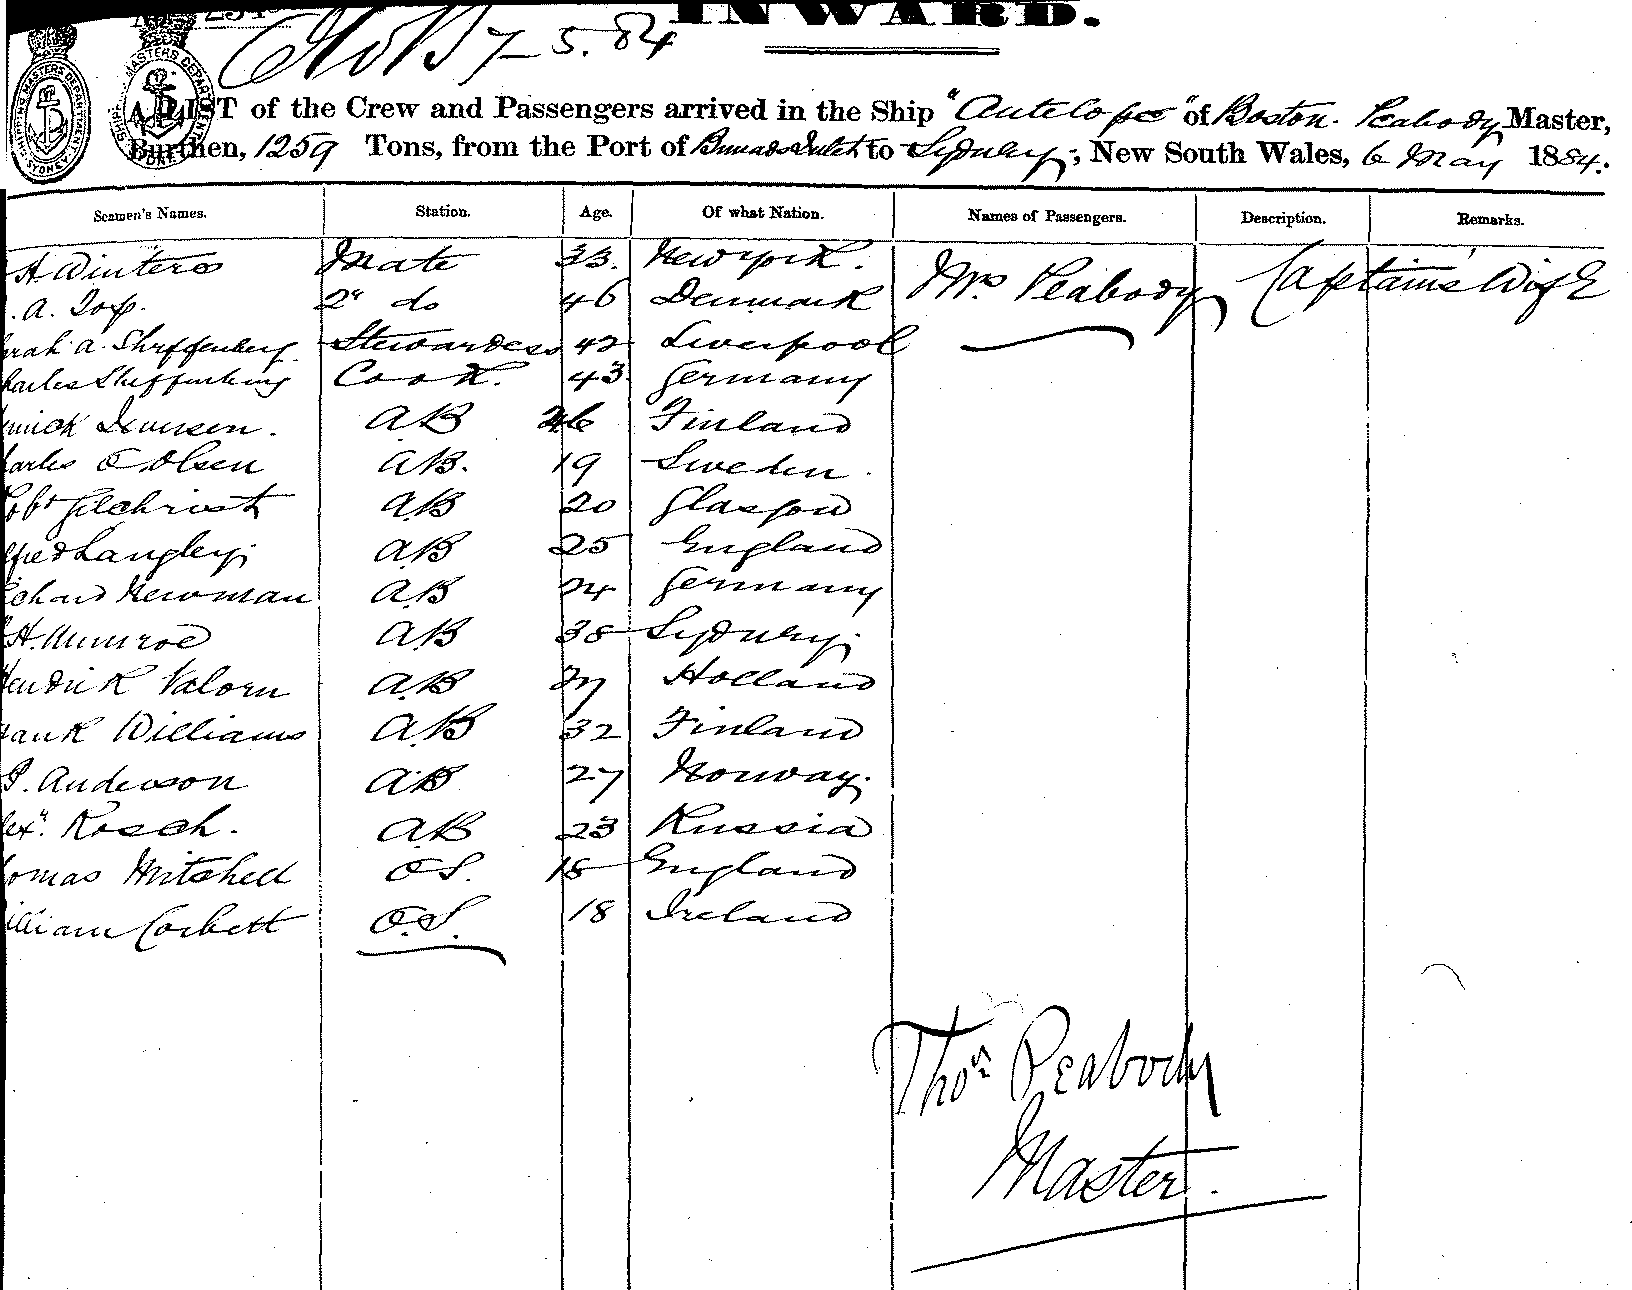 INWARD.
7-5.84
A LIST of the Crew and Passengers arrived in the Ship "Antelope" of Boston. Peabody Master,
Burthen, 1259 Tons, from the Port of Burrards Inlet to Sydney, New South Wales, 6 May 1884.
Seamen's Names. Station. Age. Of what Nation. Names of Passengers. Description. Remarks.
H Winters Mate 33. New york. Mrs Peabody Captain's Wife
A. 2d do 46 Denmark
arah A. Stewardess 42 Liverpool
harles Cook. 43 Germany
AB 26 Finland
harles O Olsen AB. 19 Sweden.
Robt Gilchrist AB 20 Glasgow
lfred Langley AB 25 England
ichard Newman AB 24 Germany
H. Munroe AB 38 Sydney.
Hendrik Valorn AB 27 Holland
rank Williams AB 32 Finland
P. Anderson AB 27 Norway.
lexr. Rosch. AB 23 Russia
homas Mitchell OS. 18 England
illiam Corbett O.S. 18 Ireland
Thos Peabody
Master.